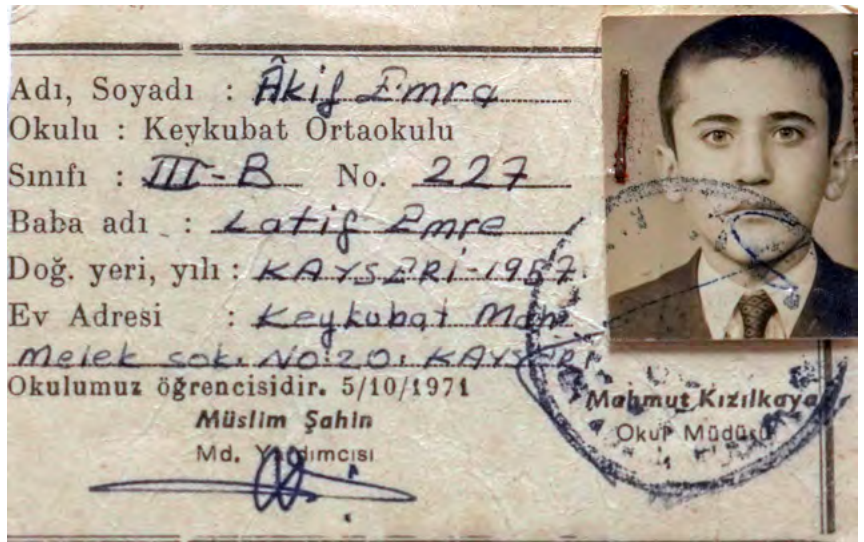 Adı, Soyadı : Âkif Emre
Okulu : Keykubat Ortaokulu
Sınıfı : III-B No. 227
Baba adı : Latif Emre
Doğ. yeri, yılı : KAYSERİ-1957
Ev Adresi : Keykubat Mah.
Melek sok. NO:20. KAYSERİ
Okulumuz öğrencisidir. 5/10/1971
Müslim Şahin
Md. Yardımcısı
Mahmut Kızılkaya
Okul Müdürü